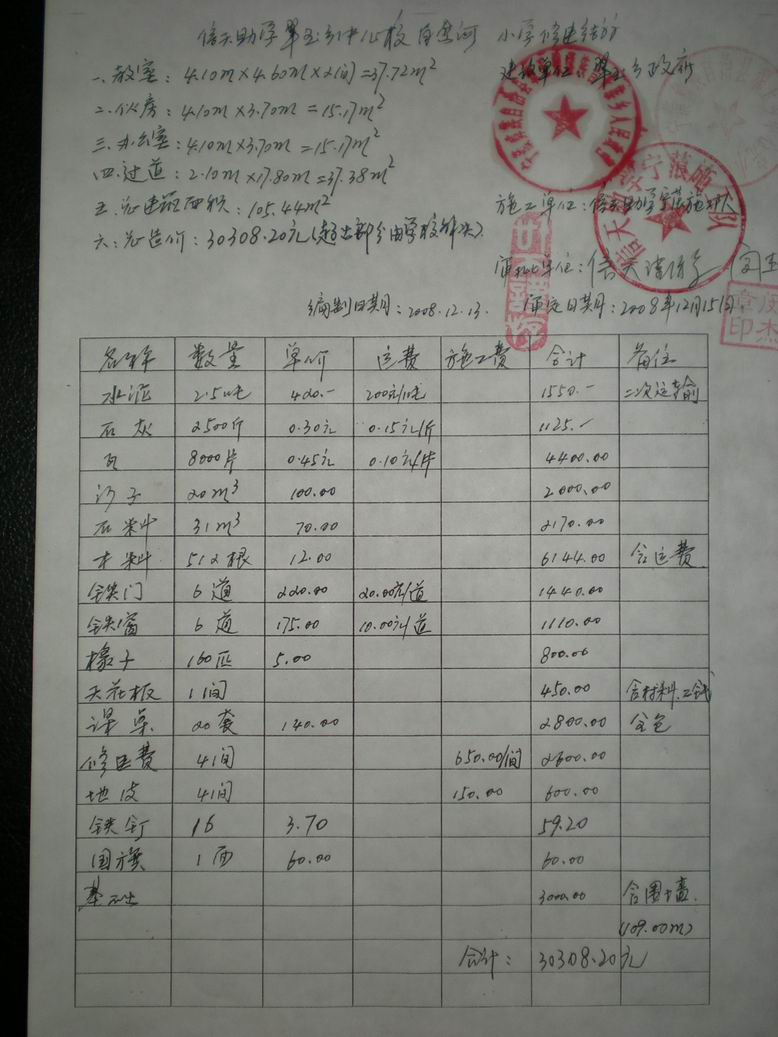 信天助学翠玉乡中心校 小学修建结算
一.教室:4.10m×4.60m×2间=37.72m²
建设单位:翠玉乡政府
二.伙房:4.10m×3.70m=15.17m²
三.办公室:4.10m×3.70m=15.17m²
四.过道:2.10m×17.80m=37.38m²
五.总建筑面积:105.44m²
施工单位:信天助学宁蒗施工队
六.总造价:30308.20元(超出部分由学校解决)
审批单位:信天
编制日期:2008.12.13.
审定日期:2008年12月15日
名称 数量 单价 运费 施工费 合计 备注
水泥 2.5吨 420.- 200元/吨 1550.- 二次运输
石灰 2500斤 0.30元 0.15元/斤 1125.-
瓦 8000片 0.45元 0.10元/片 4400.00
沙子 20m³ 100.00 2000.00
石料 31m³ 70.00 2170.00
木料 512根 12.00 6144.00 含运费
铁门 6道 220.00 20.00元/道 1440.00
铁窗 6道 175.00 10.00元/道 1110.00
椽子 160匹 5.00 800.00
天花板 1间 450.00 含材料、工钱
课桌 20套 140.00 2800.00 全包
修匠费 4间 650.00/间 2600.00
地皮 4间 150.00 600.00
铁钉 16 3.70 59.20
国旗 1面 60.00 60.00
基础 3000.00 含围墙
(109.00m)
合计: 30308.20元